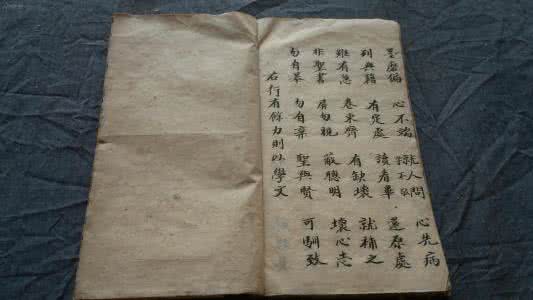 墨磨偏 心不端 字不敬 心先病
列典籍 有定處 讀看畢 還原處
雖有急 卷束齊 有缺壞 就補之
非聖書 屏勿視 蔽聰明 壞心志
勿自暴 勿自棄 聖與賢 可馴致
右行有餘力則以學文